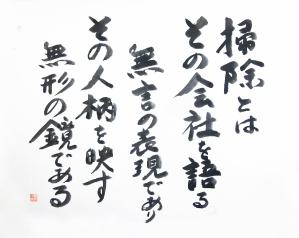 掃除とは
その会社を語る
無言の表現であり
その人柄を映す
無形の鏡である